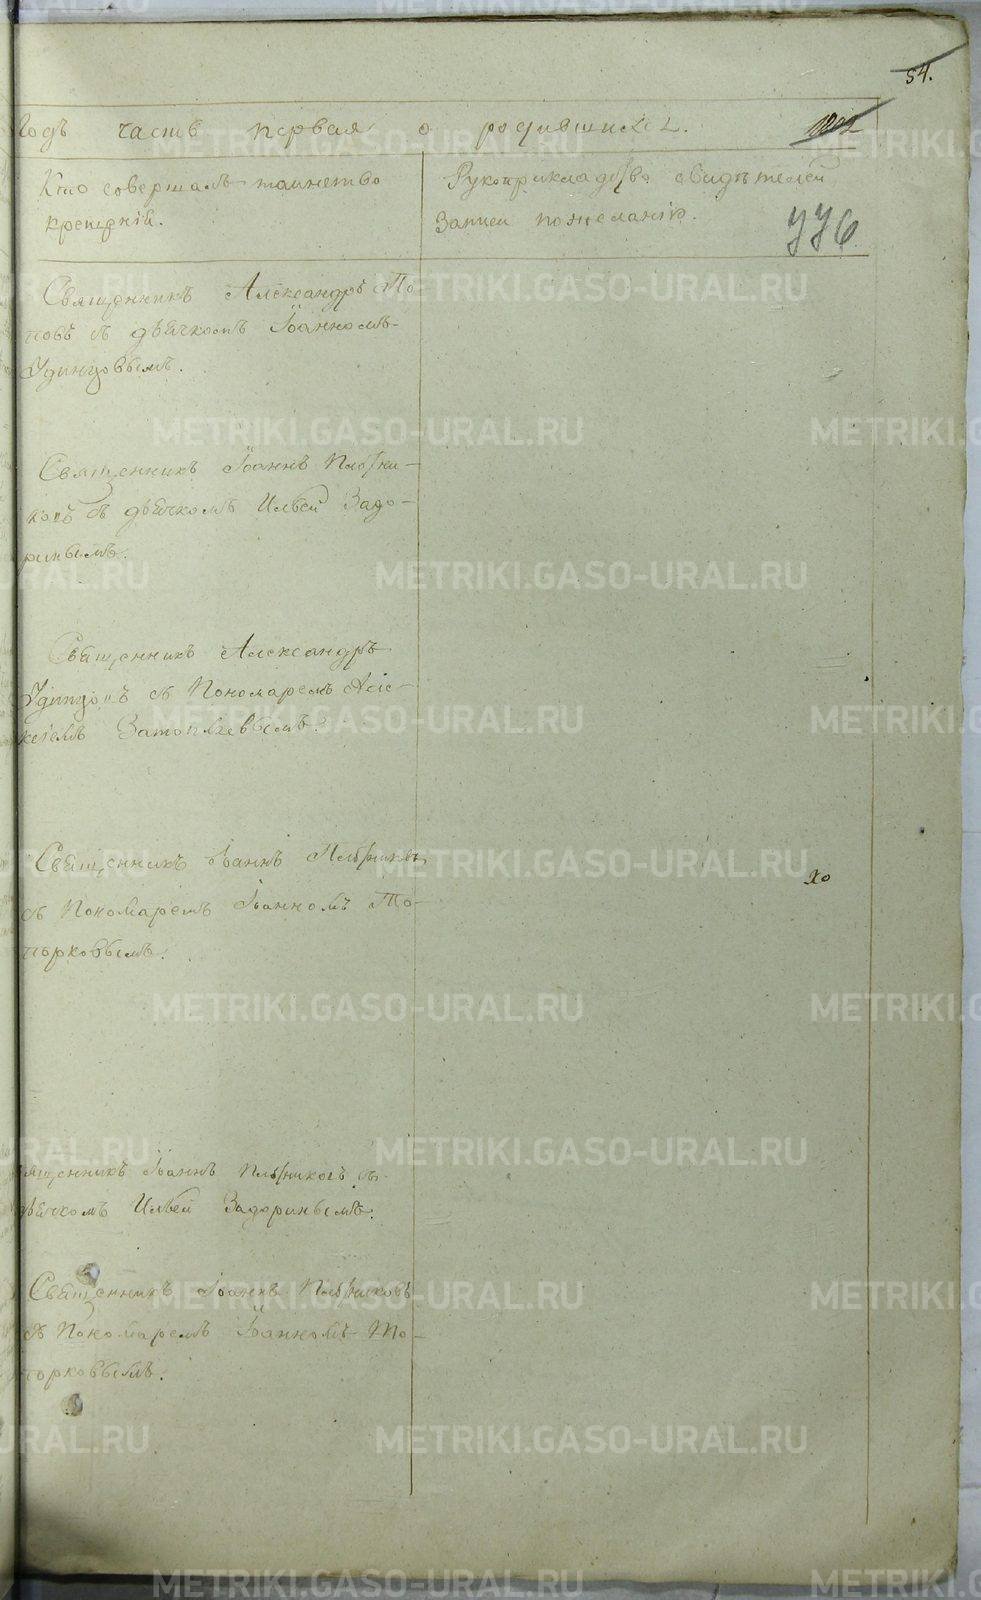 54.
Годъ часть первая о родившихся.
Кто совершалъ таинство
крещенія.
Рукоприкладство свидѣтелей
записи по желанію.
776
Священникъ Александръ По-
повъ съ дьячкомъ Іоанномъ
Удинцовымъ.
Священникъ Іоаннъ Плотни-
ковъ съ дьячкомъ Ильей Задо-
ринымъ.
Священникъ Александръ
Удинцовъ съ Пономаремъ Але-
ксѣемъ Затопляевымъ.
Священникъ Іоаннъ Плотниковъ
съ Пономаремъ Іоанномъ То-
порковымъ.
хо
ященникъ Іоаннъ Плотниковъ съ
дьячкомъ Ильей Задоринымъ.
Священникъ Іоаннъ Плотниковъ
съ Пономаремъ Іоанномъ То-
порковымъ.
METRIKI.GASO-URAL.RU